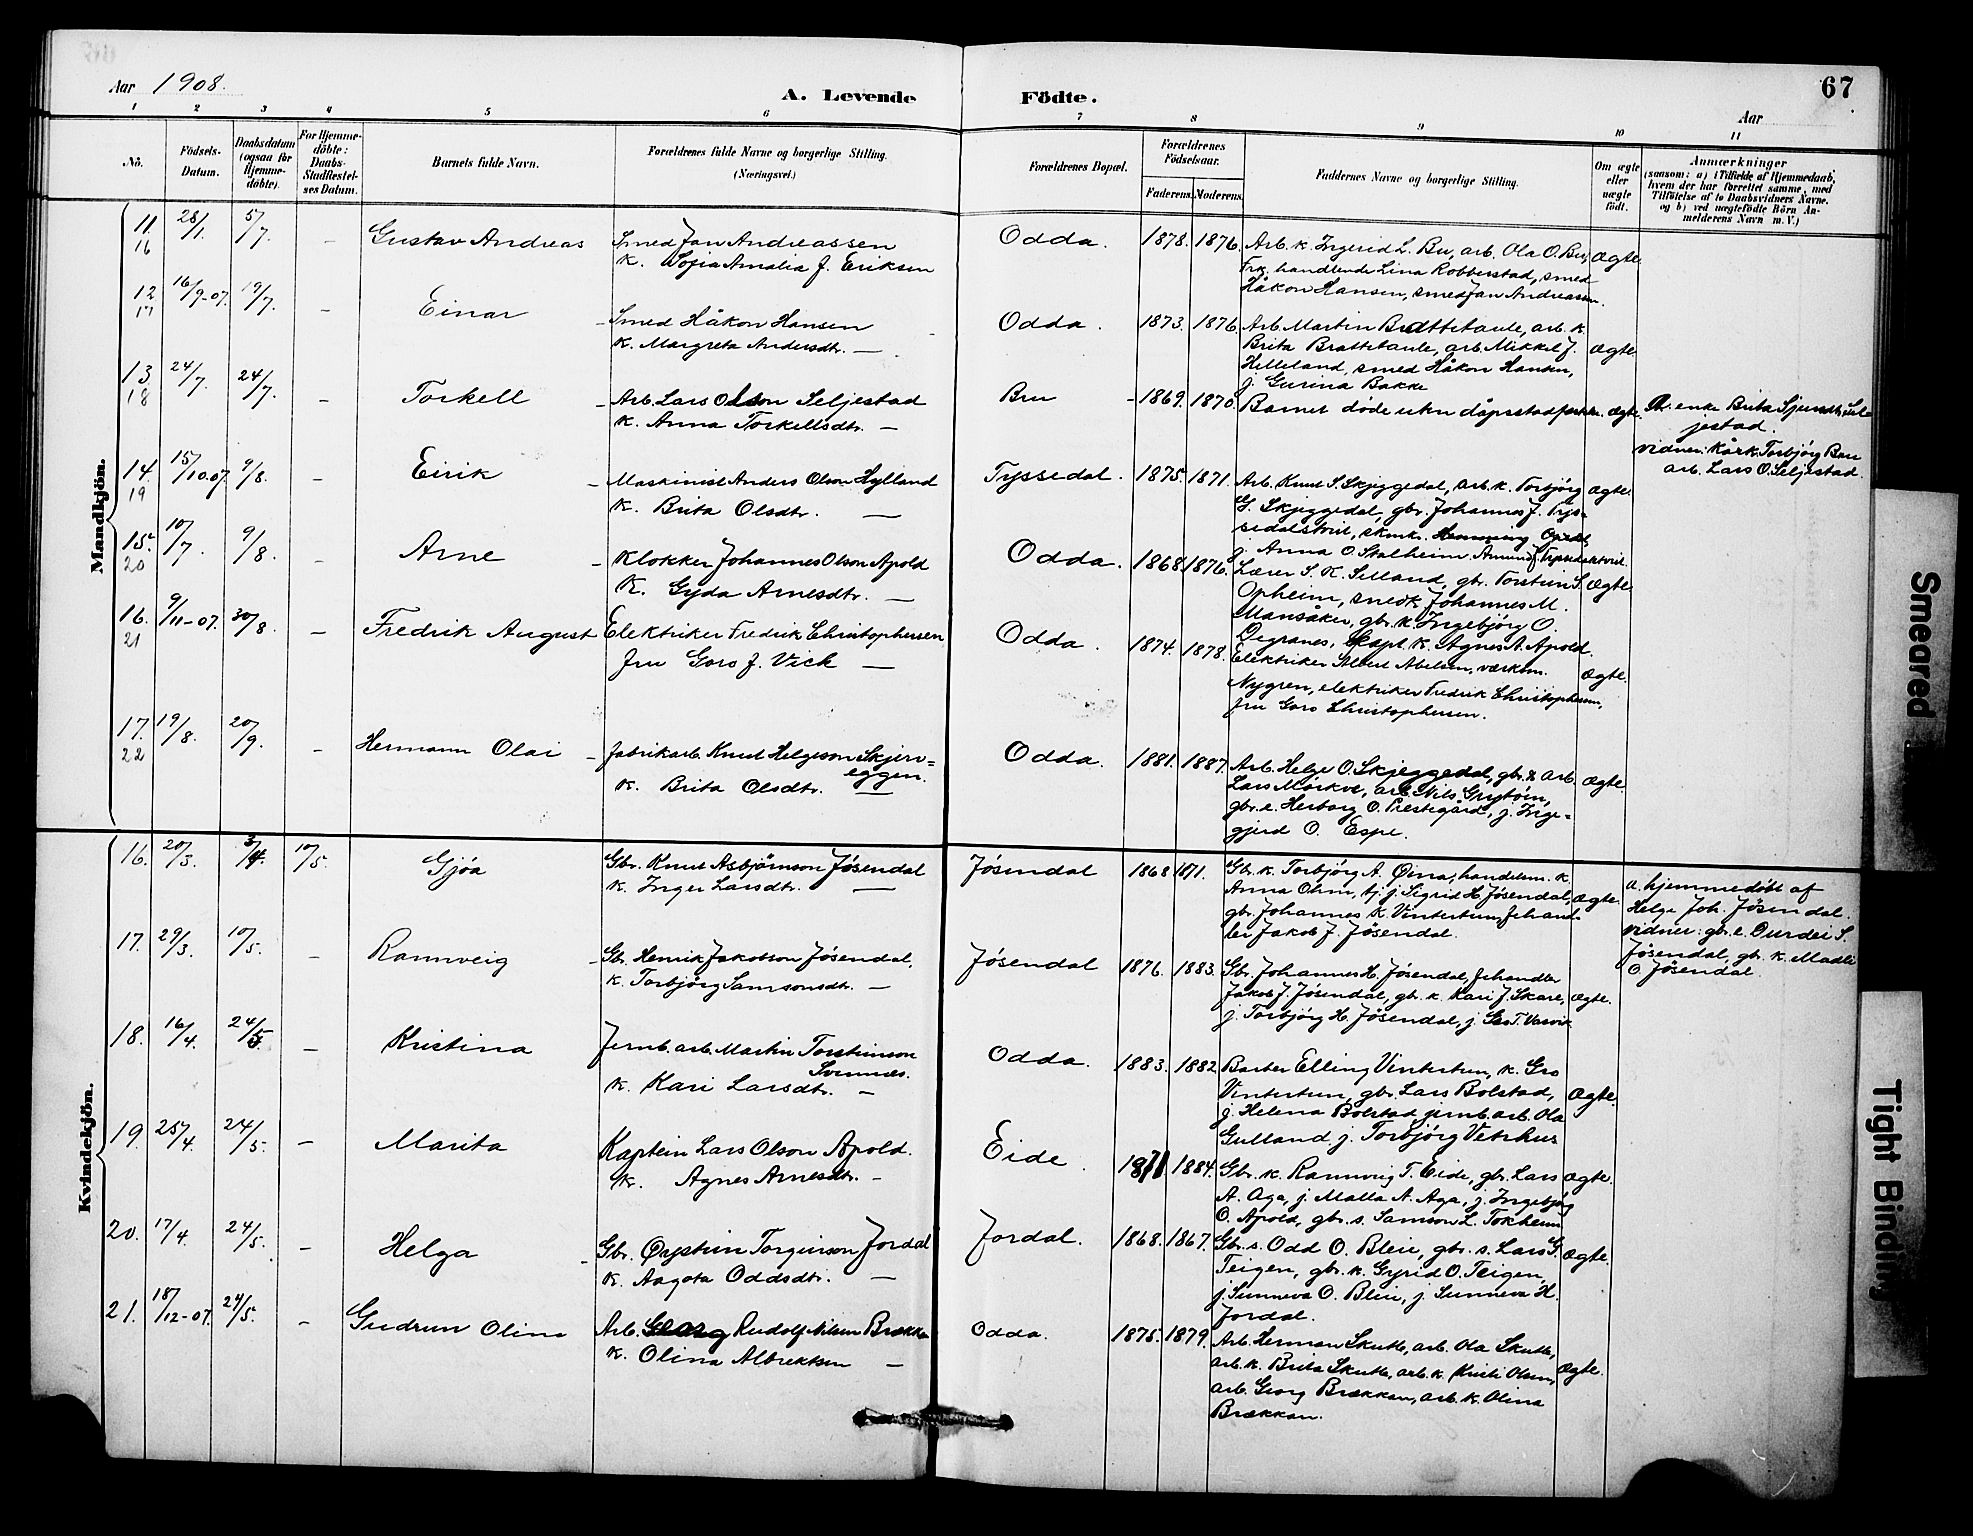 Aar 1908.
A. Levende Födte.
67
Aar
1 2 3 4 5 6 7 8 9 10 11
No.
Födsels-Datum.
Daabsdatum (ogsaa for Hjemme-döbte).
For Hjemme-döbte: Daabs-Stadfæstel-ses Datum.
Barnets fulde Navn.
Forældrenes fulde Navne og borgerlige Stilling. (Næringsvei.)
Forældrenes Bopæl.
Forældrenes Födselsaar.
Faderens. Moderens.
Faddernes Navne og borgerlige Stilling.
Om ægte eller uægte födt.
Anmærkninger
(saasom: a) i Tilfælde af Hjemmedaab, hvem der har forrettet samme, med Tilföielse af to Daabsvidners Navne, og b) ved uægtefödte Börn An-melderens Navn m. V.)
Mandkjön.
11. 16 28/1. 5/7. - Gustav Andreas
Smed Jan Andreassen
K. Sofia Amalia f. Eriksen
Odda. 1878. 1876.
Arb. k. Ingerid L. Bu, arb. Ola O. Bu,
Frk. handlende Lina Robberstad, smed
Håkon Hansen, smed Jan Andreassen.
ægte.
12 17 16/9-07. 19/7. - Einar
Smed Håkon Hansen
K. Margreta Andersdtr. —
Odda. 1873. 1876.
Arb. Martin Brattetaule, arb. k.
Brita Brattetaule, arb. Mikkel J.
Helleland, smed Håkon Hansen,
j. Gurina Bakke
ægte.
13 18 24/7. 24/7. - Torkell
Arb. Lars Olson Seljestad
K. Anna Torkellsdtr. —
Bru 1869. 1870.
Barnet döde uten dåpsstadfestelse. ægte.
enke Brita Sjursdtr. Sel-
jestad.
vidner: Torbjörg Bru
arb. Lars O. Seljestad.
14. 19 15/10.07. 9/8. - Eirik
Maskinist Anders Olson Hylland
K. Brita Olsdtr. —
Tyssedal. 1875. 1871.
Arb. Knut S. Skjeggedal, arb. k. Torbjörg
G. Skjeggedal, gbr. Johannes J. Tys-
sedalstveit, Henning
j. Anna O. Stalheim.
ægte.
15. 20 10/7. 9/8. - Arne
Klokker Johannes Olson Apold
K. Gyda Arnesdtr. —
Odda. 1868. 1876.
Lærer S. K. Selland, gbr. Torstein S.
Opheim, smedk. Johannes M.
Mansåker, gbr. k. Ingebjörg O.
Degranes, Kapt. k. Agnes A. Apold.
ægte.
16. 21 9/11-07. 30/8. - Fredrik August
Elektriker Fredrik Christophersen
fru Goro f. Vick —
Odda. 1874. 1878.
Elektriker Albert Abelsen, værksm.
Nygren, elektriker Fredrik Christophersen,
fru Goro Christophersen.
ægte.
17. 22 19/8. 20/9. - Hermann Olai
Fabrikarb. Knut Helgeson Skjers-
eggen.
K. Brita Olsdtr. —
Odda. 1881. 1887.
Arb. Helge O. Skjeggedal, gbr. & arb.
Lars Mörkve, arb. Nils Grytöen,
gbr. e. Herborg O. Prestegård, j. Inge-
gjerd O. Espe.
ægte.
Kvindekjön.
16. 20/3. 3/4. 10/5. Gjóa
Gbr. Knut Asbjörnson Jósendal
K. Inger Larsdtr. —
Jósendal 1868 1871.
Gbr. k. Torbjörg A. Öina, handelsm. k.
Anna Ohm, tj. j. Sigrid H. Jósendal,
gbr. Johannes K. Vintertun, fehand-
ler Jakob J. Jósendal.
ægte.
a. hjemmedöbt af
Helge Joh. Jósendal.
vidner: gbr. e. Durdei S.
Jósendal, gbr. k. Madli
O. Jósendal.
17. 29/3. 10/5. - Rannveig
Gbr. Henrik Jakobson Jósendal.
K. Torbjörg Samsonsdtr. —
Jósendal 1876. 1883.
Gbr. Johannes H. Jósendal, fehandler
Jakob J. Jósendal, gbr. k. Kari J. Skare,
j. Torbjörg H. Jósendal, j.
ægte.
18. 16/4. 24/5. - Kristina
Jernb. arb. Martin Torsteinson
Svennes.
K. Kari Larsdtr. —
Odda. 1883. 1882.
Barber Elling Vintertun, k. Gro
Vintertun, gbr. Lars Bolstad,
j. Helena Bolstad, jernb. arb. Ola
Gulland, j. Torbjörg Vetrhus
ægte.
19. 25/4. 24/5. - Marita
Kaptein Lars Olson Apold.
K. Agnes Arnesdtr. —
Eide. 1871 1884.
Gbr. k. Rannveig T. Eide, gbr. Lars
A. Aga, j. Malla N. Aga, j. Ingebjörg
O. Apold, gbr. s. Samson L. Tokheim
ægte.
20. 17/4. 24/5. - Helga
Gbr. Öystein Torgeirson Jordal
K. Aagota Oddsdtr. —
Jordal. 1868. 1867.
Gbr. s. Odd O. Bleie, gbr. s. Lars G.
Teigen, gbr. k. Gyrid O. Teigen,
j. Sunneva O. Bleie, j. Sunneva H.
Jordal.
ægte.
21. 18/12-07. 24/5. - Gudrun Olina
Arb. Georg Rudolf Nilsen Brækkan
K. Olina Albrektsen —
Odda. 1875. 1879.
Arb. Herman Skutle, arb. Ola Skutle,
arb. k. Brita Skutle, arb. k. Kristi Olsen,
arb. Georg Brækkan, arb. k. Olina
Brækkan.
ægte.
Smeared
Tight Binding